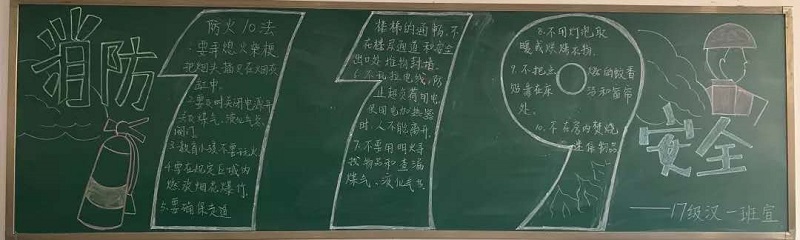 消防
防火10法
1.要寻熄火柴梗
把烟头插灭在烟灰
缸中.
2.要及时关闭电源开
关及煤气、液化气总
阀门
3.教育小孩不要玩火
4.要在规定区域内
燃放烟花爆竹.
5.要确保走道
楼梯的通畅,不
在楼层通道和安全
出口处堆物封堵.
6.不乱拉电线,防
止超负荷用电
使用电加热器
时,人不能离开.
7.不要用明火寻
找物品和查漏
煤气、液化气气
8.不用灯泡取
暖或烘烤衣物.
9.不把点燃的蚊香
贴靠在床沿和窗帘
处.
10.不在房内焚烧
迷信物品
安全
——17级汉一班宣